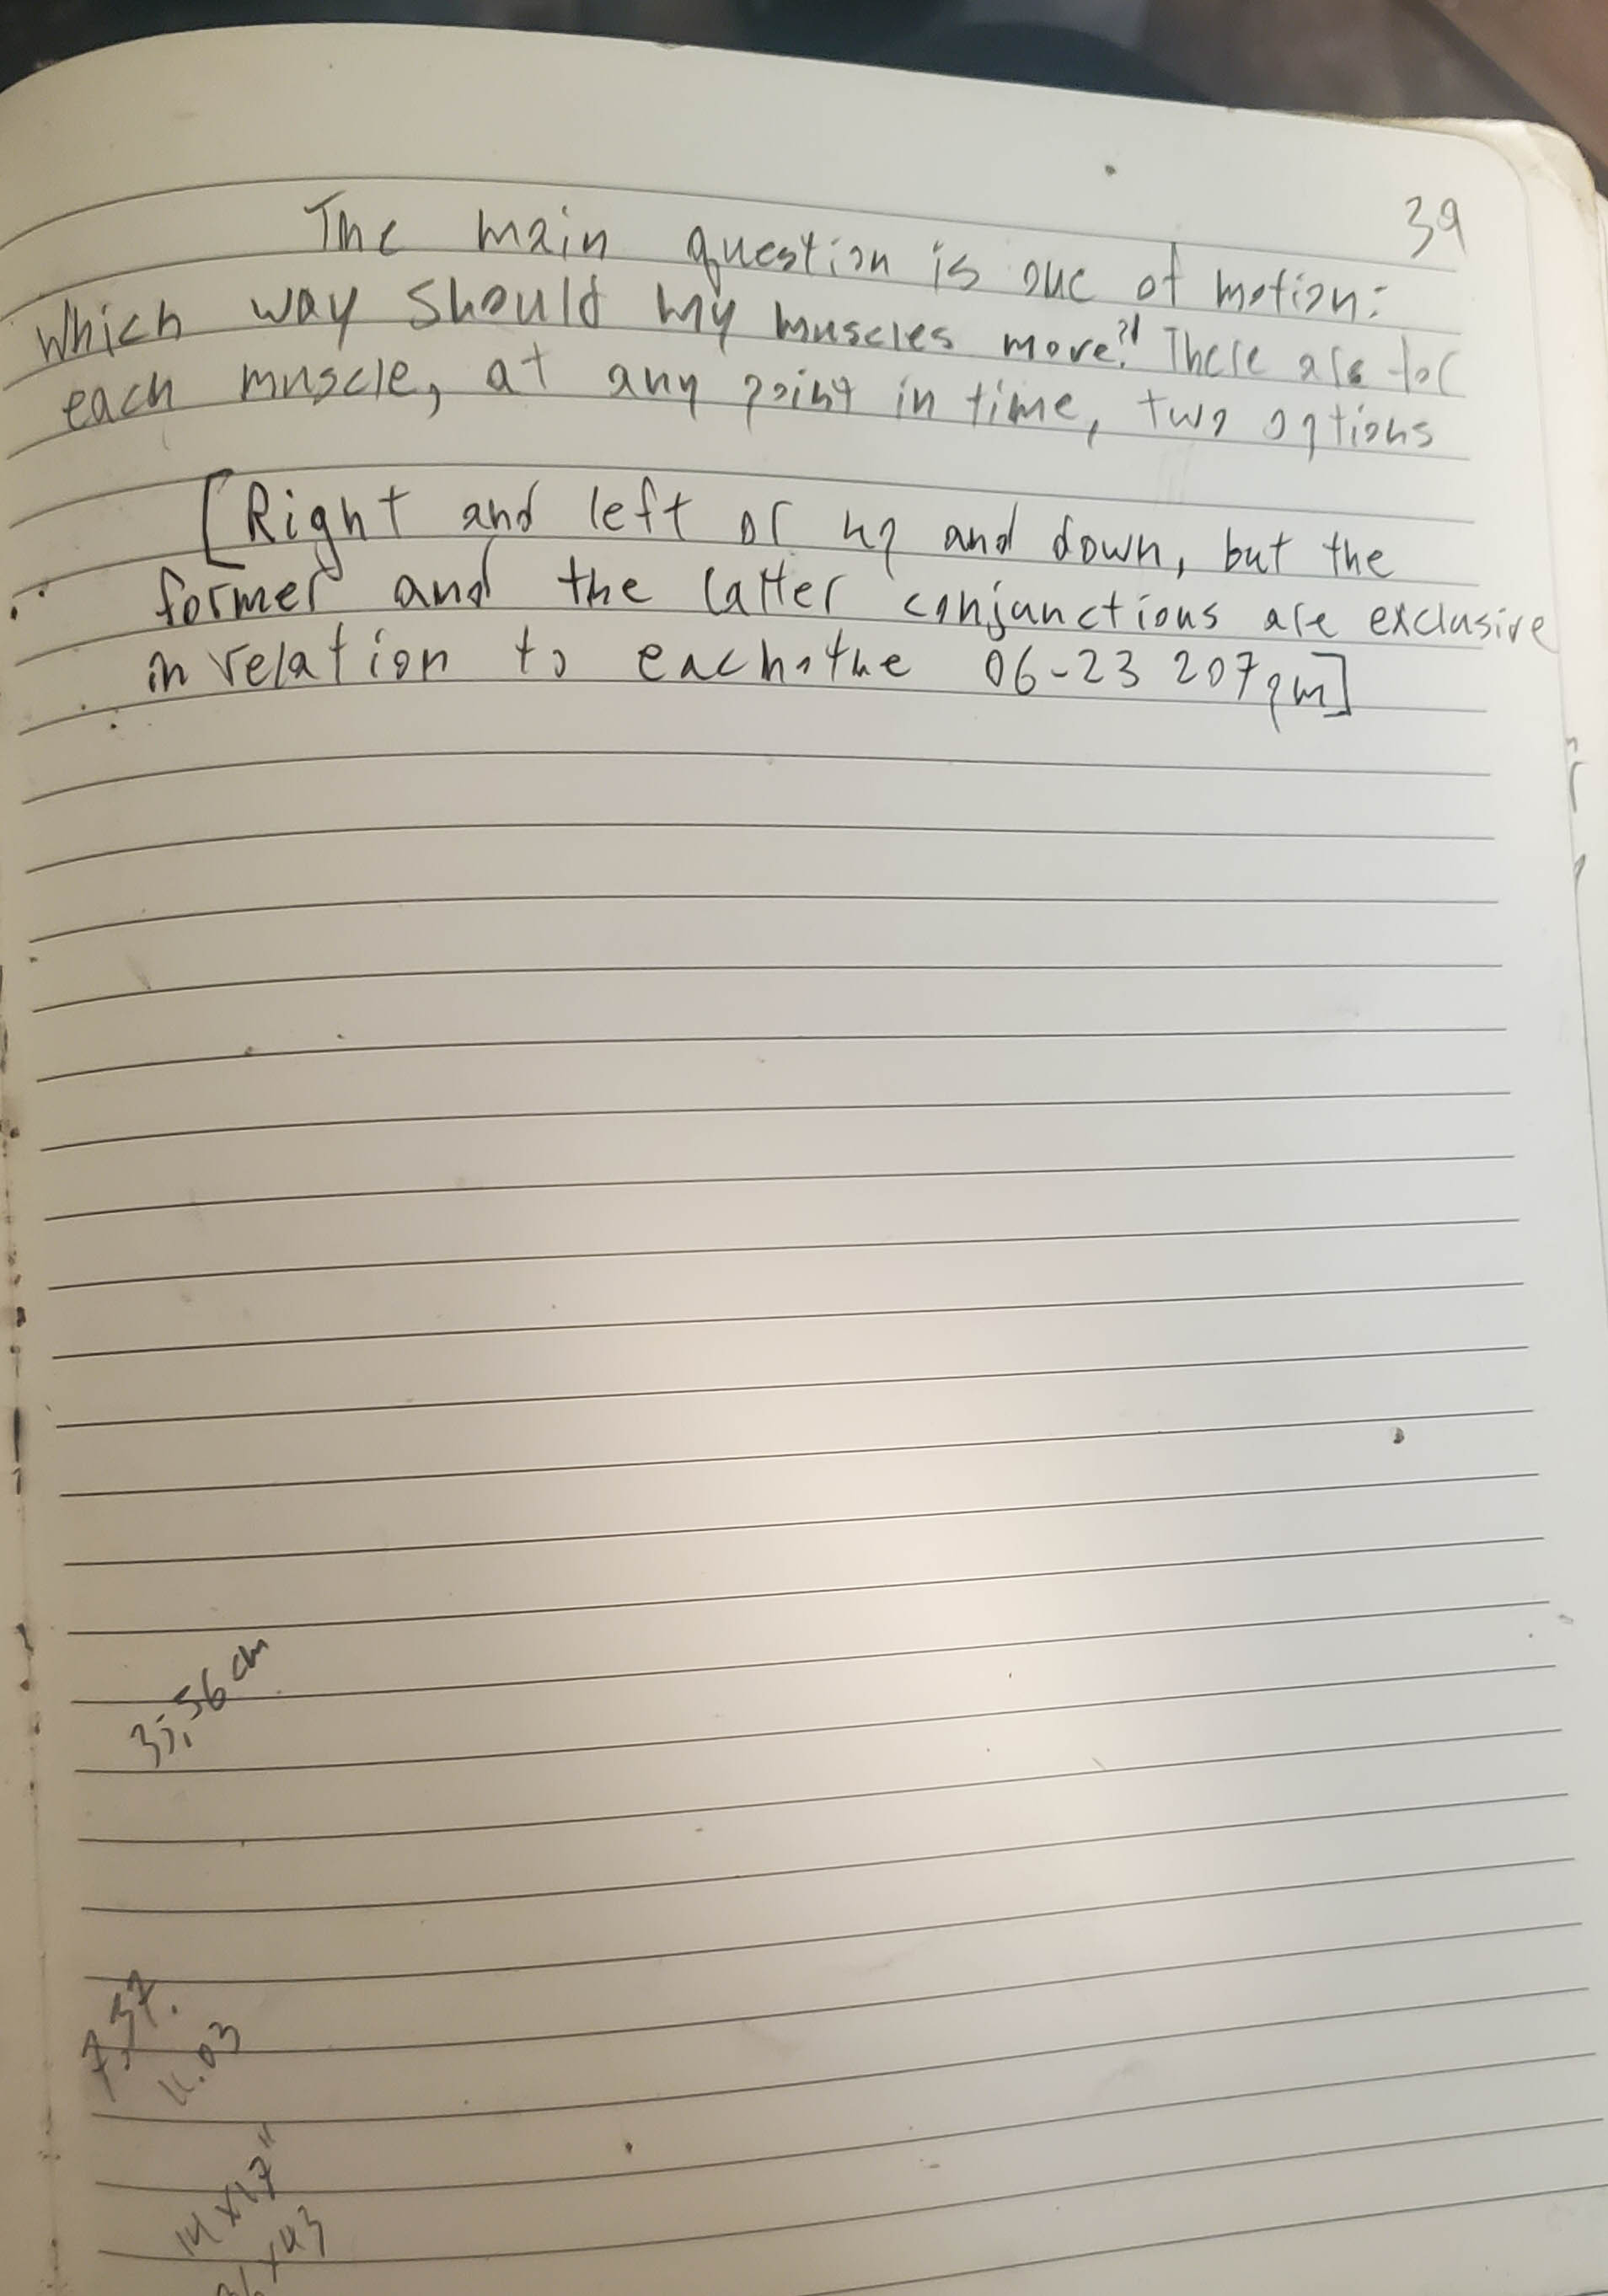 39
The main question is one of motion:
Which way should my muscles move?" There are for
each muscle, at any point in time, two options
[Right and left or up and down, but the
former and the latter conjunctions are exclusive
in relation to eachothe 06-23 207pm]
35,56 cm
7,37.
11.03
14 x 17"
x 43